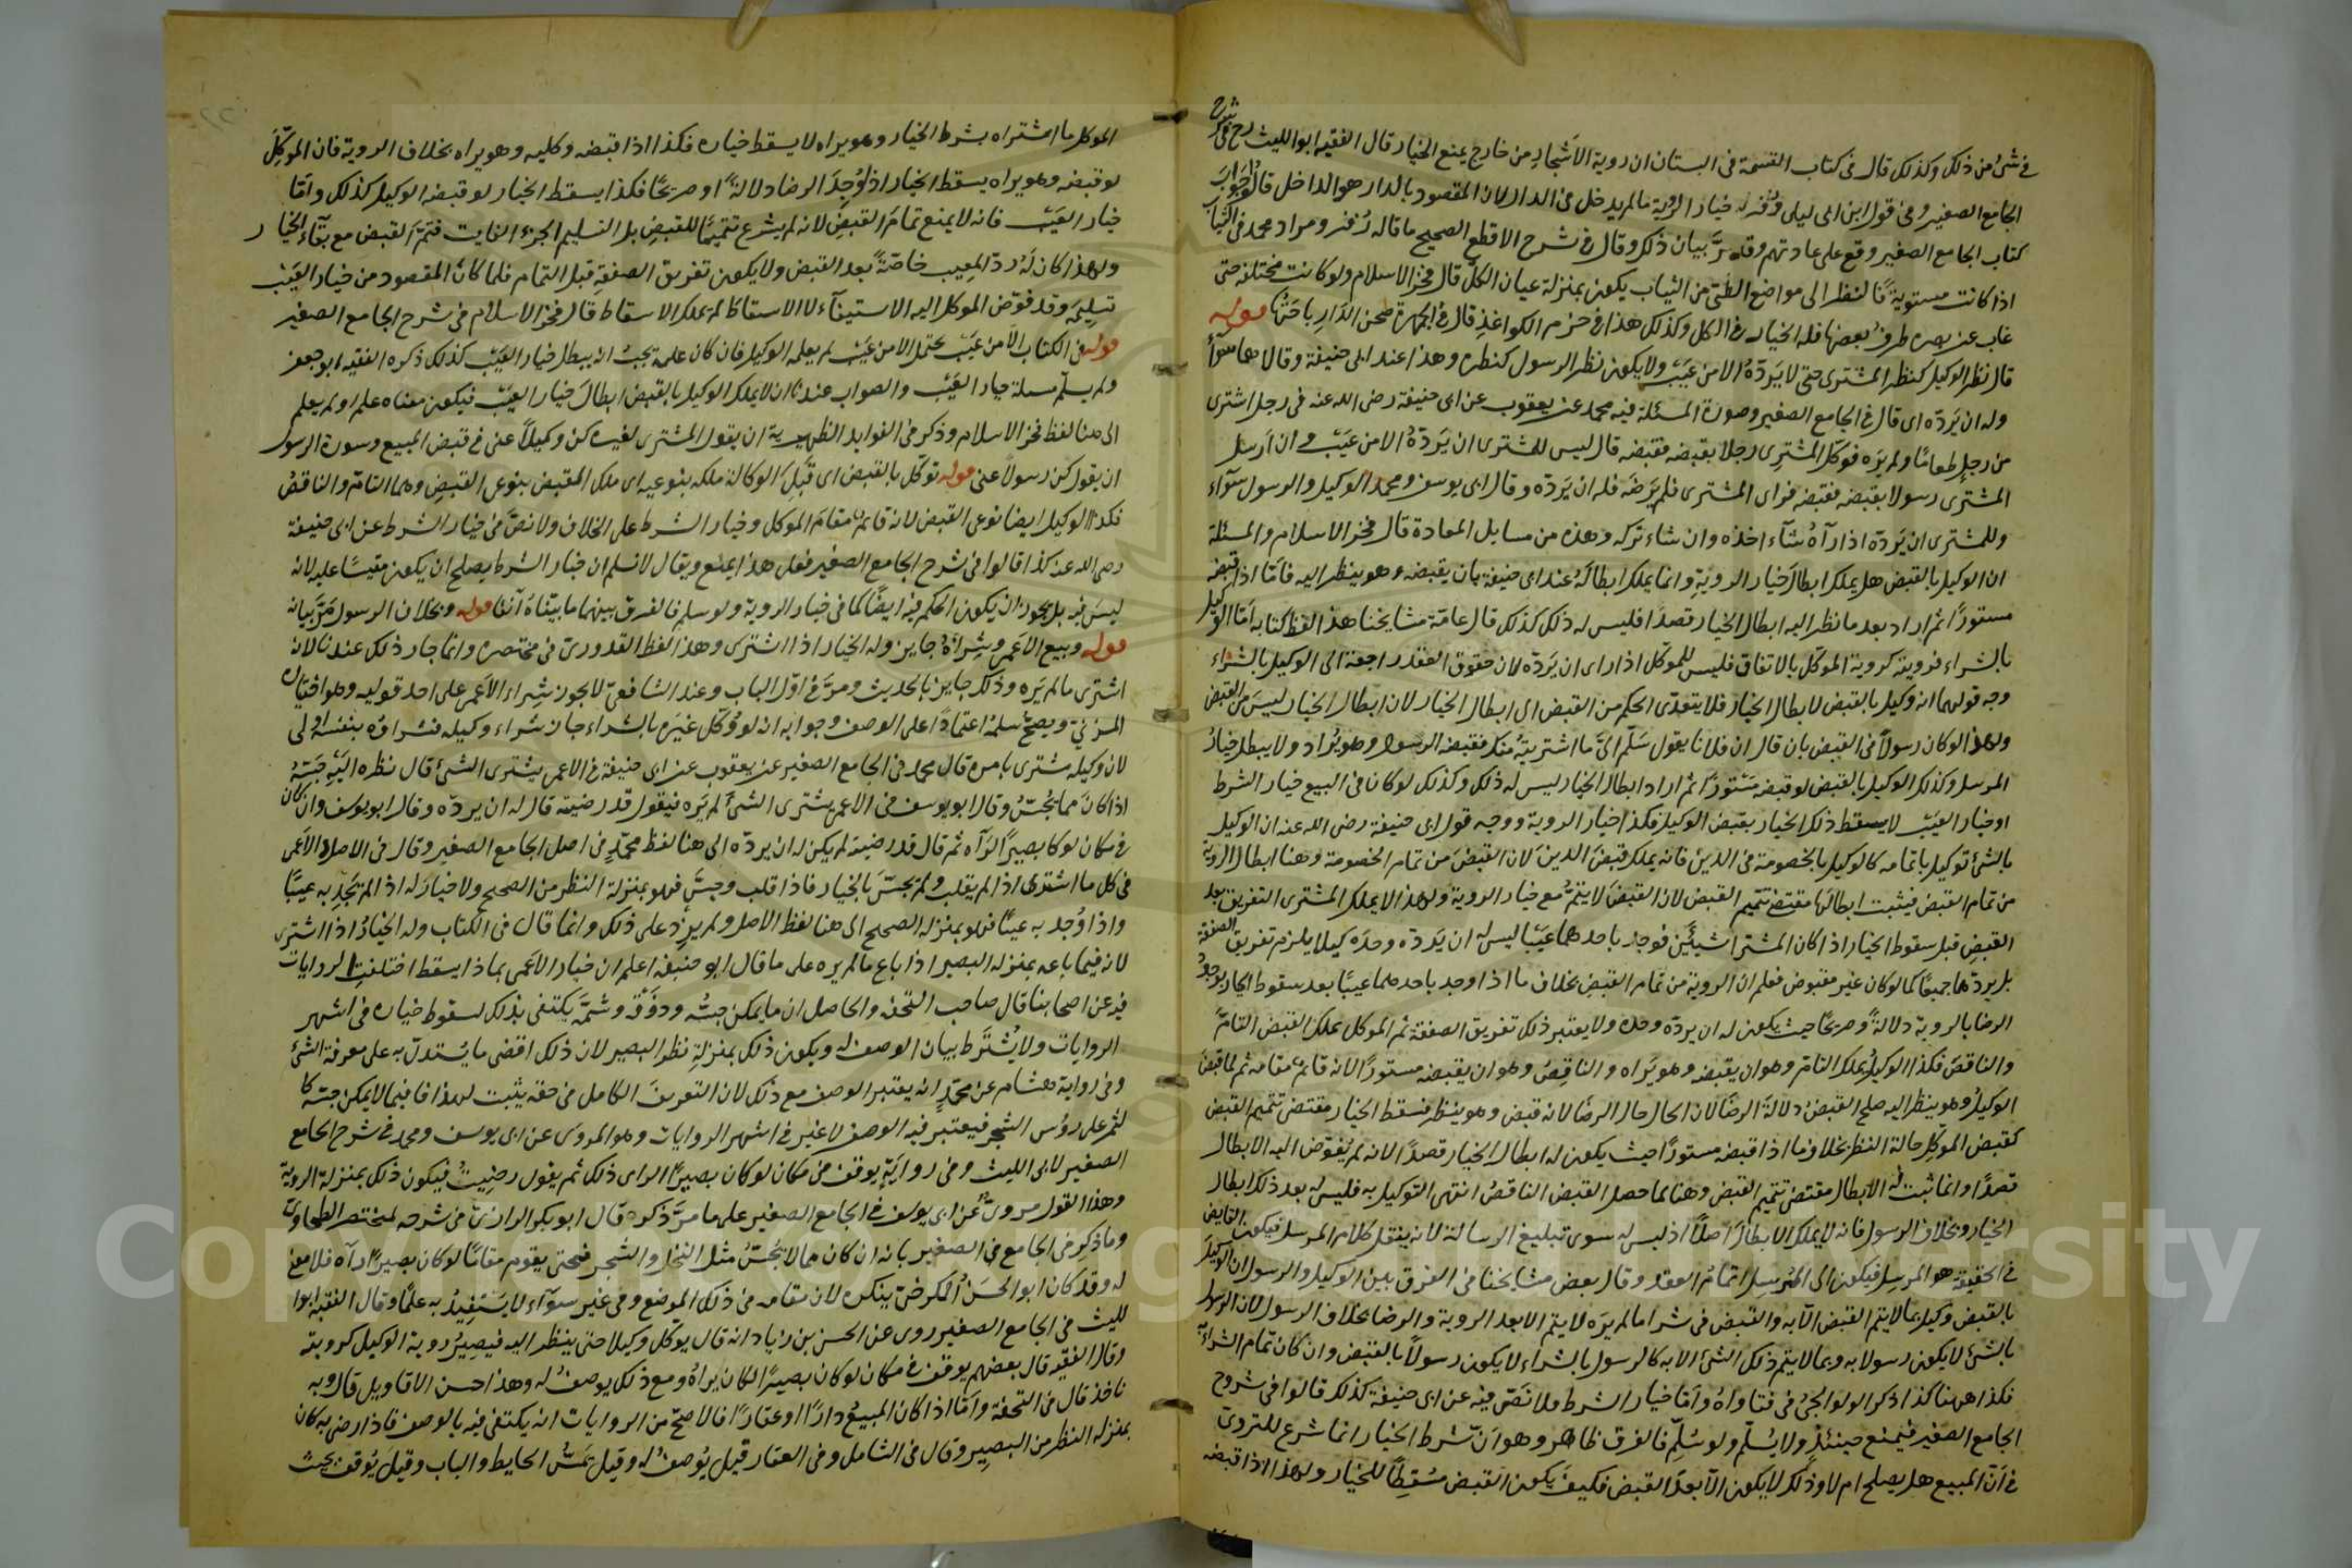 في شئ من ذلك وكذلك قال في كتاب القسمة في البستان ان روية الاشجار من خارج يمنع الخيار قال الفقيه ابو الليث رح في شرح
الجامع الصغير وفي قول ابن ابي ليلى وزفر له خيار الروية ما لم يدخل من الدار لان المقصود بالدار هو الداخل قالوا جواب
كتاب الجامع الصغير وقع على عادتهم وقد مرّ بيان ذلك وقال في شرح الاقطع الصحيح ما قاله زفر ومراد محمد في الثياب
اذا كانت مستوية فالنظر الى مواضع الطي من الثياب يكون بمنزلة عيان الكل قال فخر الاسلام ولو كانت مختلفة حتى
غاب عن بصره طرف بعضها فله الخيار في الكل وكذلك هذا في حزم الكواغذ قال في الجمهرة صحن الدار باحتها قوله
قال نظر الوكيل كنظر المشتري حتى لا يردّه الا من عيب ولا يكون نظر الرسول كنظره وهذا عند ابي حنيفة وقالا هما سوآء
وله ان يردّه اي قال في الجامع الصغير وصورة المسئلة فيه محمد عن يعقوب عن ابي حنيفة رضى الله عنه في رجل اشترى
من رجل طعاما ولم يره فوكل المشتري رجلا بقبضه فقبضه قال ليس للمشتري ان يردّه الا من عيب وان ارسل
المشتري رسولا بقبضه فقبضه فراى المشتري فلم يرضه فله ان يردّه وقال ابي يوسف ومحمد الوكيل والرسول سوآء
وللمشتري ان يردّه اذا رآه شآء اخذه وان شاء تركه وهذه من مسايل المعادة قال فخر الاسلام والمسئلة
ان الوكيل بالقبض هل يملك ابطال خيار الروية وانما يملك ابطاله عند ابي حنيفة بان يقبضه وهو ينظر اليه فامّا اذا قبضه
مستورا ثم اراد بعد ما نظر اليه ابطال الخيار قصدا فليس له ذلك كذلك قال عامة مشايخنا هذا لفظ كتابه امّا الوكيل
بالشراء فرويته كروية الموكّل بالاتفاق فليس للموكّل اذا راى ان يردّه لان حقوق العقد راجعة الى الوكيل بالشراء
وجه قولهما انه وكيل بالقبض لا بطال الخيار فلا يتعدّى الحكم من القبض الى ابطال الخيار لان ابطال الخيار ليس من القبض
ولهذا لو كان رسولا في القبض بان قال ان فلانا يقول سلّم اليّ ما اشتريته منك فقبضه الرسول وهو يراه ولا يبطل خيار
المرسل وكذلك الوكيل بالقبض لو قبضه مستورا ثم اراد ابطال الخيار ليس له ذلك وكذلك لو كان في البيع خيار الشرط
او خيار العيب لا يسقط ذلك الخيار بقبض الوكيل فكذا خيار الروية ووجه قول ابي حنيفة رضى الله عنه ان الوكيل
بالشئ توكيل باتمامه كالوكيل بالخصومة في الدين فانه يملك قبض الدين لان القبض من تمام الخصومة وهنا ابطال الروية
من تمام القبض فيثبت ابطالها مقتضى تتميم القبض لان القبض لا يتمّ مع خيار الروية ولهذا لا يملك المشتري التفريق بعد
القبض قبل سقوط الخيار اذا كان المشترا شيئين فوجد باحدهما عيبا ليس له ان يردّه وحده كيلا يلزم تفريق الصفقة
بل يردّهما جميعا كما لو كان غير مقبوض فعلم ان الروية من تمام القبض بخلاف ما اذا وجد باحدهما عيبا بعد سقوط الخيار بوجود
الرضا بالروية دلالة وصريحا حيث يكون له ان يردّه وحده ولا يعتبر ذلك تفريق الصفقة ثم الموكل يملك القبض التامّ
والناقص فكذا الوكيل يملك التام وهو ان يقبضه وهو يراه والناقص وهو ان يقبضه مستورا لانه قائم مقامه ثم لما قبض
الوكيل وهو ينظر اليه صلح القبض دلالة الرضا لان الحال حال الرضا لانه قبض وهو ينظر فسقط الخيار مقتضى تتميم القبض
كقبض الموكل حالة النظر بخلاف ما اذا قبضه مستورا حيث يكون له ابطال الخيار قصدا لانه لم يفوّض اليه الابطال
قصدا وانما ثبت له الابطال مقتضى تتميم القبض وهنا بما حصل القبض الناقص انتهى التوكيل به فليس له بعد ذلك ابطال
الخيار وبخلاف الرسول فانه لا يملك الابطال اصلا اذ ليس له سوى تبليغ الرسالة لانه ينقل كلام المرسل فيكون القابض
في الحقيقة هو المرسل فيكون الى المرسل اتمام العقد وقال بعض مشايخنا في الفرق بين الوكيل والرسول ان الوكيل
بالقبض وكيل بما لا يتم القبض الّا به والقبض في شرا ما لم يره لا يتم الا بعد الروية والرضا بخلاف الرسول لان الرسول
بالشئ لا يكون رسولا به وبما لا يتم ذلك الشئ الا به كالرسول بالشراء لا يكون رسولا بالقبض وان كان تمام الشراء به
فكذا ههنا كذا ذكر الولوالجي في فتاواه وامّا خيار الشرط فلا نصّ فيه عن ابي حنيفة كذلك قالوا في شروح
الجامع الصغير فيمنع حينئذ ولا يسلّم ولو سلّم فالفرق ظاهر وهو انّ شرط الخيار انما شرع للتروي
في انّ المبيع هل يصلح ام لا وذلك لا يكون الّا بعد القبض فكيف يكون القبض مسقطا للخيار ولهذا اذا قبضه
الموكل ما اشتراه بشرط الخيار وهو يراه لا يسقط خياره فكذا اذا قبضه وكليه وهو يراه بخلاف الروية فان الموكّل
لو قبضه وهو يراه يسقط الخيار اذ وُجد الرضا دلالة او صريحا فكذا يسقط الخيار لو قبضه الوكيل كذلك وامّا
خيار العيب فانه لا يمنع تمام القبض لانه لم يشرع تتميما للقبض بل لتسليم الجزء الفايت فتمّ القبض مع بقآء الخيار
ولهذا كان له ردّ المعيب خاصّة بعد القبض ولا يكون تفريق الصفقة قبل التمام فلما كان المقصود من خيار العيب
تسليمه وقد فوّض الموكل اليه الاستيفآء لا الاسقاط لم يملك الاسقاط قال فخر الاسلام في شرح الجامع الصغير
قوله في الكتاب الّا من عيب يحتمل الا من عيب لم يعلمه الوكيل فان كان علمه يجب ان يبطل خيار العيب كذلك ذكره الفقيه ابو جعفر
ولم يسلّم مسئلة خيار العيب والصواب عندنا ان لا يملك الوكيل بالقبض ابطال خيار العيب فيكون معناه علم او لم يعلم
الى هنا لفظ فخر الاسلام وذكر في الفوايد الظهيرية ان يقول المشتري لغيره كن وكيلا عني في قبض المبيع وصورة الرسول
ان يقول كن رسولا عني قوله توكّل بالقبض اى قبل الوكالة ملكه بنوعيه اى ملك المقبض بنوعى القبض وهما التامّ والناقص
فكذا الوكيل ايضا نوعى القبض لانه قائم مقام الموكل وخيار الشرط على الخلاف ولا نصّ في خيار الشرط عن ابي حنيفة
رضى الله عنه كذا قالوا في شرح الجامع الصغير فعلى هذا يمنع ويقال لا نسلم ان خيار الشرط يصلح ان يكون مقيسا عليه لانه
ليس فيه بل يجوز ان يكون الحكم فيه ايضا كما في خيار الروية ولو سلم فالفرق بينهما ما بيّناه آنفا قوله وبخلاف الرسول مرّ بيانه
قوله وبيع الاعمى وشراؤه جايز وله الخيار اذا اشترى وهذا لفظ القدوري في مختصره وانما جاز ذلك عندنا لانه
اشترى ما لم يره وذلك جايز بالحديث ومرّ في اوّل الباب وعند الشافعي لا يجوز شراء الاعمى على احد قوليه وهو اختيار
المزني ويصحّ سلمه اعتمادا على الوصف وجوابه ان لو وكّل غيره بالشراء جاز شراء وكيله فشراؤه بنفسه اولى
لان وكيله يشتري بامره قال محمد في الجامع الصغير عن يعقوب عن ابي حنيفة في الاعمى يشتري الشئ قال نظره اليه جسّه
اذا كان مما يجسّ وقال ابو يوسف في الاعمى يشتري الشئ لم يره فيقول قد رضيته قال له ان يردّه وقال ابو يوسف وان كان
في مكان لو كا بصيرا لرآه ثم قال قد رضيته لم يكن له ان يردّه الى هنا لفظ محمّد في اصل الجامع الصغير وقال في الاصل والاعمى
في كل ما اشترى اذا لم يقلب ولم يجسّ بالخيار فاذا قلب وجسّ فهو بمنزلة النظر من الصحيح ولا خيار له اذا لم تجد به عيبا
واذا وُجد به عيبا فهو بمنزلة الصحيح الى هنا لفظ الاصل ولم يزد على ذلك وانما قال في الكتاب وله الخيار اذا اشترى
لانه فيما باعه بمنزلة البصير اذا باع ما لم يره على ما قال ابو حنيفة اعلم ان خيار الاعمى بماذا يسقط اختلفت الروايات
فيه عن اصحابنا قال صاحب التحفة والحاصل ان ما يمكن جسّه وذوقه وشمّه يكتفى بذلك لسقوط خياره في اشهر
الروايات ولا يُشترط بيان الوصف له ويكون ذلك بمنزلة نظر البصير لان ذلك اقصى ما يُستدلّ به على معرفة الشئ
وفي رواية هشام عن محمّد انه يعتبر الوصف مع ذلك لان التعريف الكامل في حقه يثبت لهذا فاما فيما لا يمكن جسّه كا
لثمر على رؤس الشجر فيعتبر فيه الوصف لا غير في اشهر الروايات وهو المروى عن ابي يوسف ومحمد في شرح الجامع
الصغير لابي الليث وفي رواية يوقف في مكان لو كان بصيرا لراى ذلك ثم يقول رضيت فيكون ذلك بمنزلة الروية
وهذا القول مروىّ عن ابي يوسف في الجامع الصغير على ما مرّ ذكره قال ابو بكر الرازي في شرحه لمختصر الطحاوي
وما ذكر في الجامع في الصغير بانه ان كان مما لا يجسّ مثل النخل والشجر فحتى يقوم مقاما لو كان بصيرا رآه فلا معنى
له وقد كان ابو الحسن الكرخيّ ينكره لان مقامه في ذلك الموضع وفي غير سوآء لا يستفيد به علما وقال الفقيه ابوا
لليث في الجامع الصغير روى عن الحسن بن زياد انه قال يوكّل وكيلا حتى ينظر اليه فيصير روية الوكيل كرويته
وقال الفقيه قال بعضهم يوقف في مكان لو كان بصيرا لكان يراه ومع ذلك يوصف له وهذا احسن الاقاويل قال وبه
ناخذ قال في التحفة وامّا اذا كان المبيع دارا او عقارا فالاصحّ من الروايات انه يكتفى فيه بالوصف فاذا رضى به كان
بمنزلة النظر من البصير وقال في الشامل وفى العقار قيل يُوصف له وقيل يمسّ الحايط والباب وقيل يُوقف بحيث